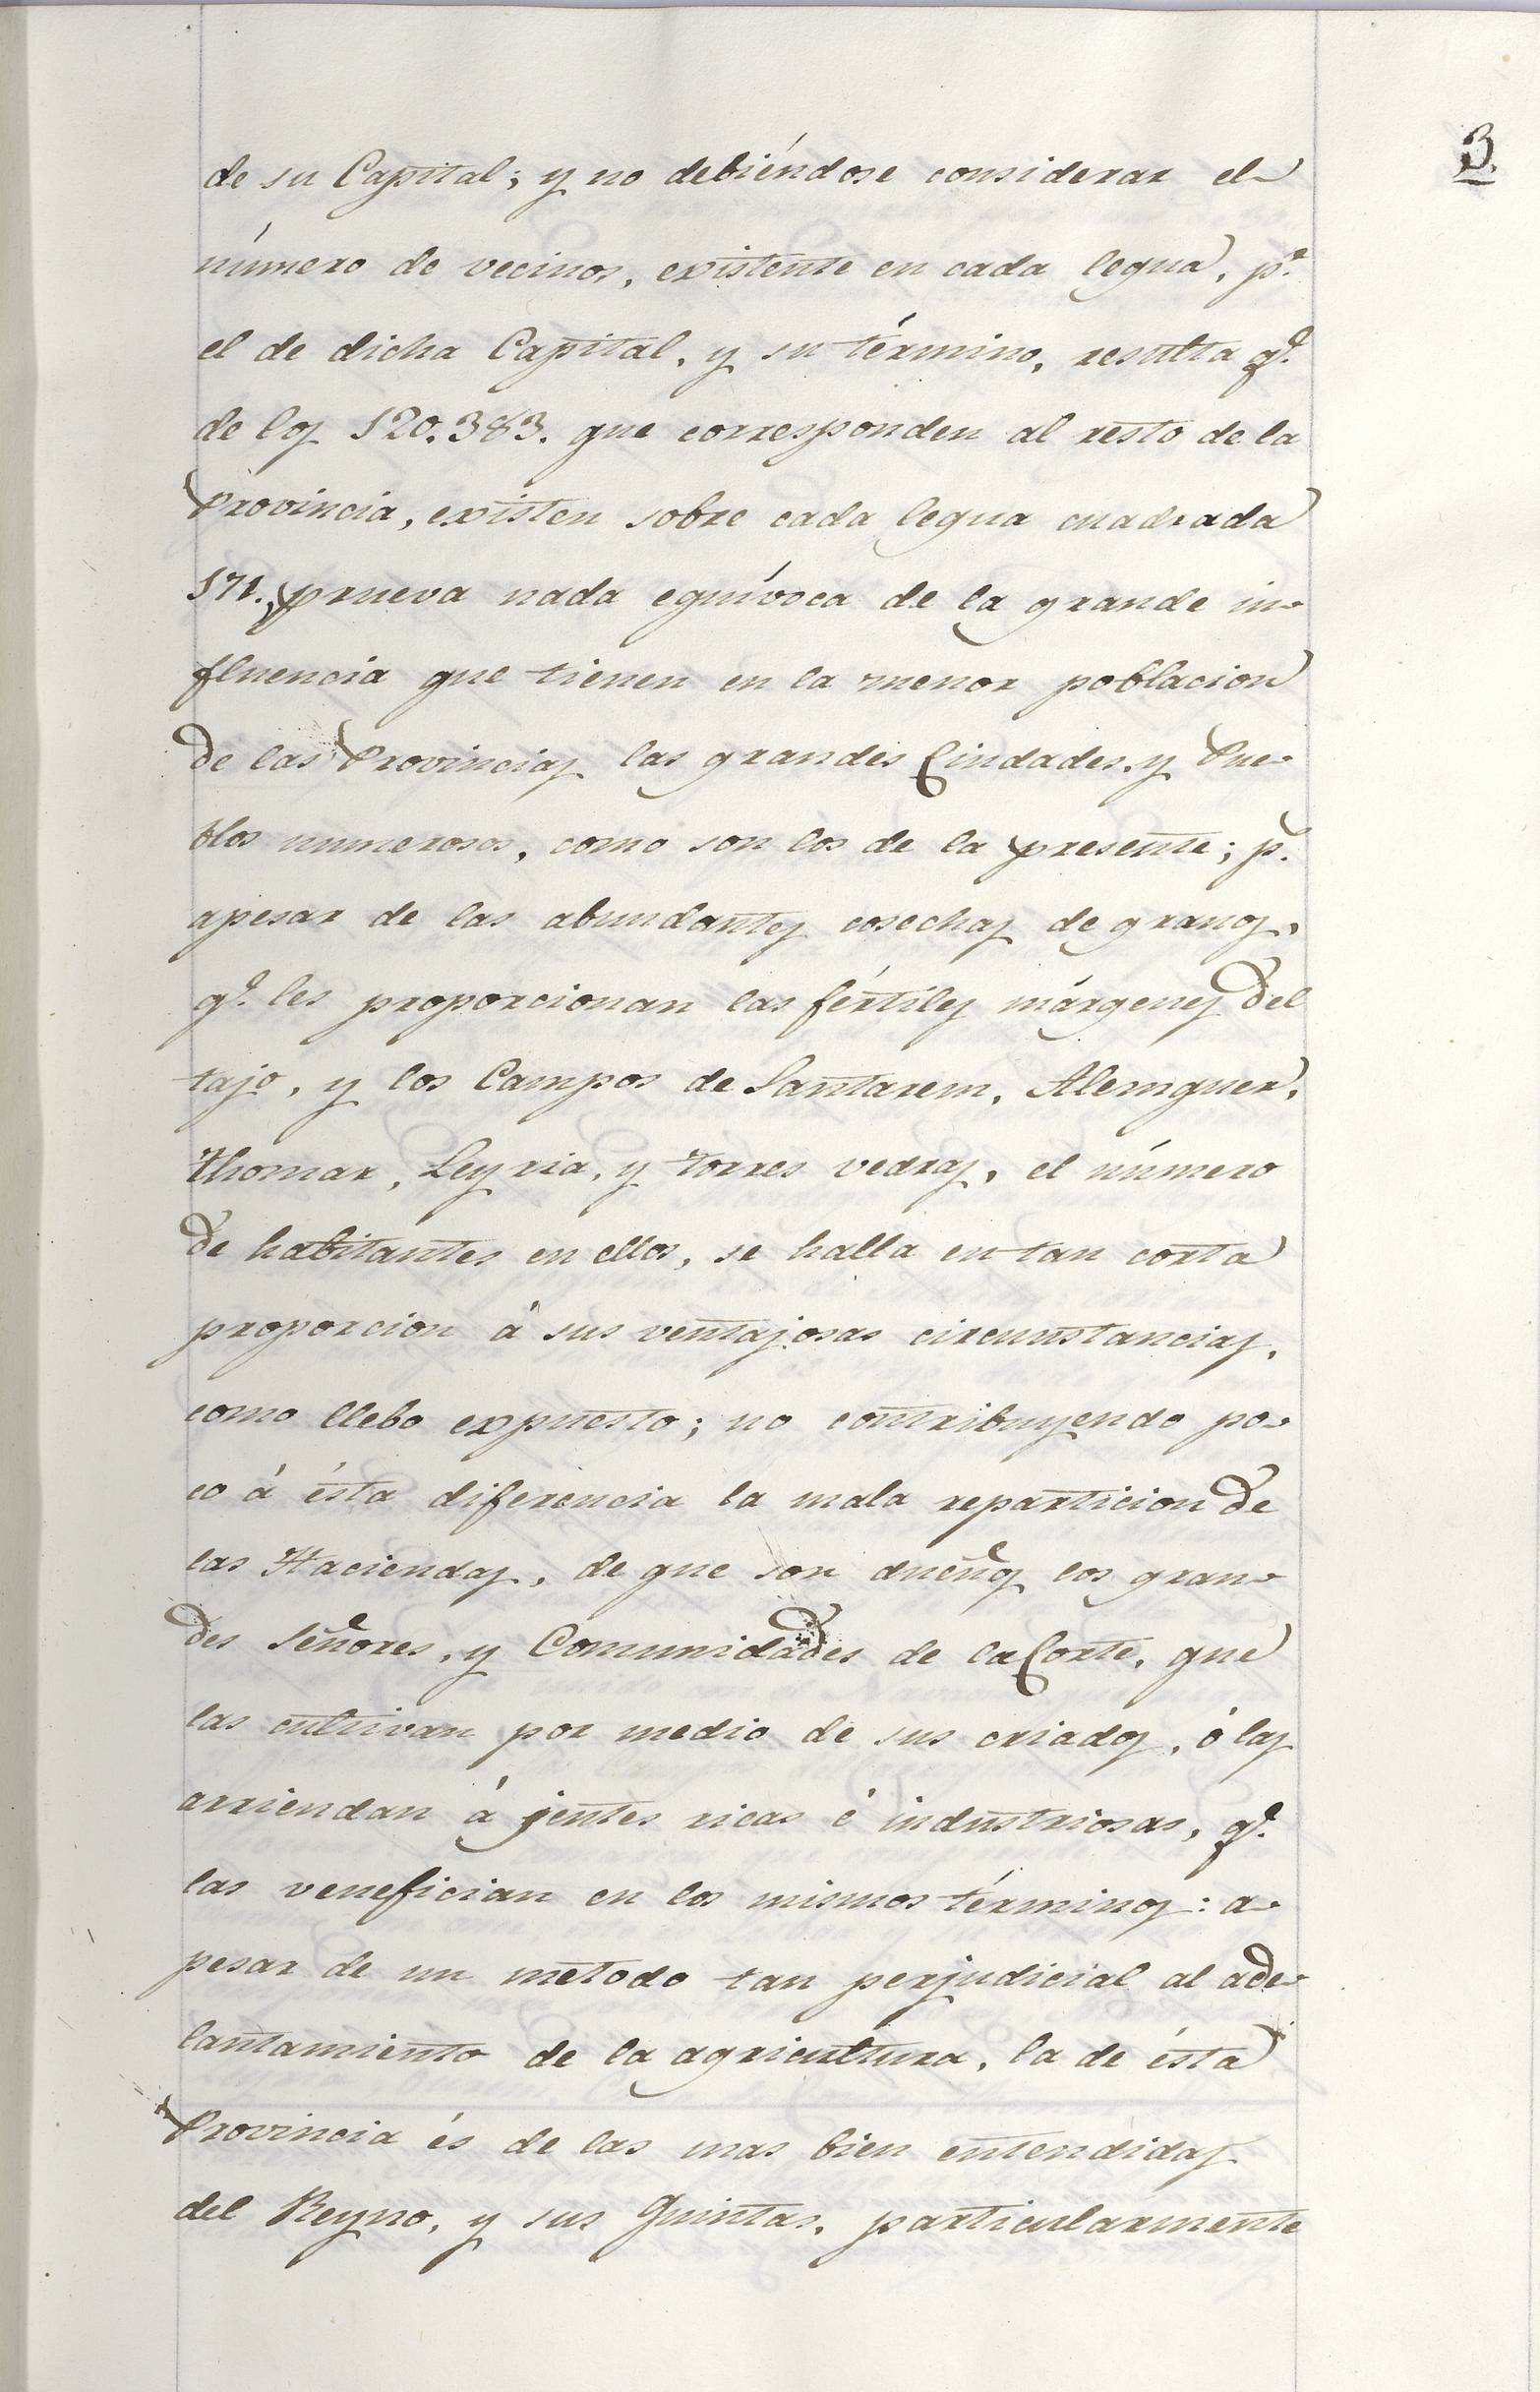 3.
de su Capital; y no debiéndose considerar el
número de vecinos, existente en cada legua, p.r
el de dicha Capital, y su término, resulta q.e
de los 120.383. que corresponden al resto de la
Provincia, existen sobre cada legua cuadrada
171., prueva nada equívoca de la grande in-
fluencia que tienen en la menor poblacion
de las Provincias las grandes Ciudades, y Pue-
blos numerosos, como son los de la presente; p.s
apesar de las abundantes cosechas de granos,
q.e les proporcionan las fértiles márgenes del
tajo, y los Campos de Santarem, Alemquer,
Thomar, Leyria, y Torres vedras, el número
de habitantes en ellos, se halla en tan corta
proporcion á sus ventajosas circunstancias,
como llebo expuesto; no contribuyendo po-
co á ésta diferencia la mala reparticion de
las Haciendas, de que son dueños los gran-
des Señores, y Comunidades de la Corte, que
las cultivan por medio de sus criados, ó las
arriendan á jentes ricas é industriosas, q.e
las venefician en los mismos términos: a-
pesar de un metodo tan perjudicial al ade-
lantamiento de la agricultura, la de ésta
Provincia és de las mas bien entendidas
del Reyno, y sus Quintas, particularmente